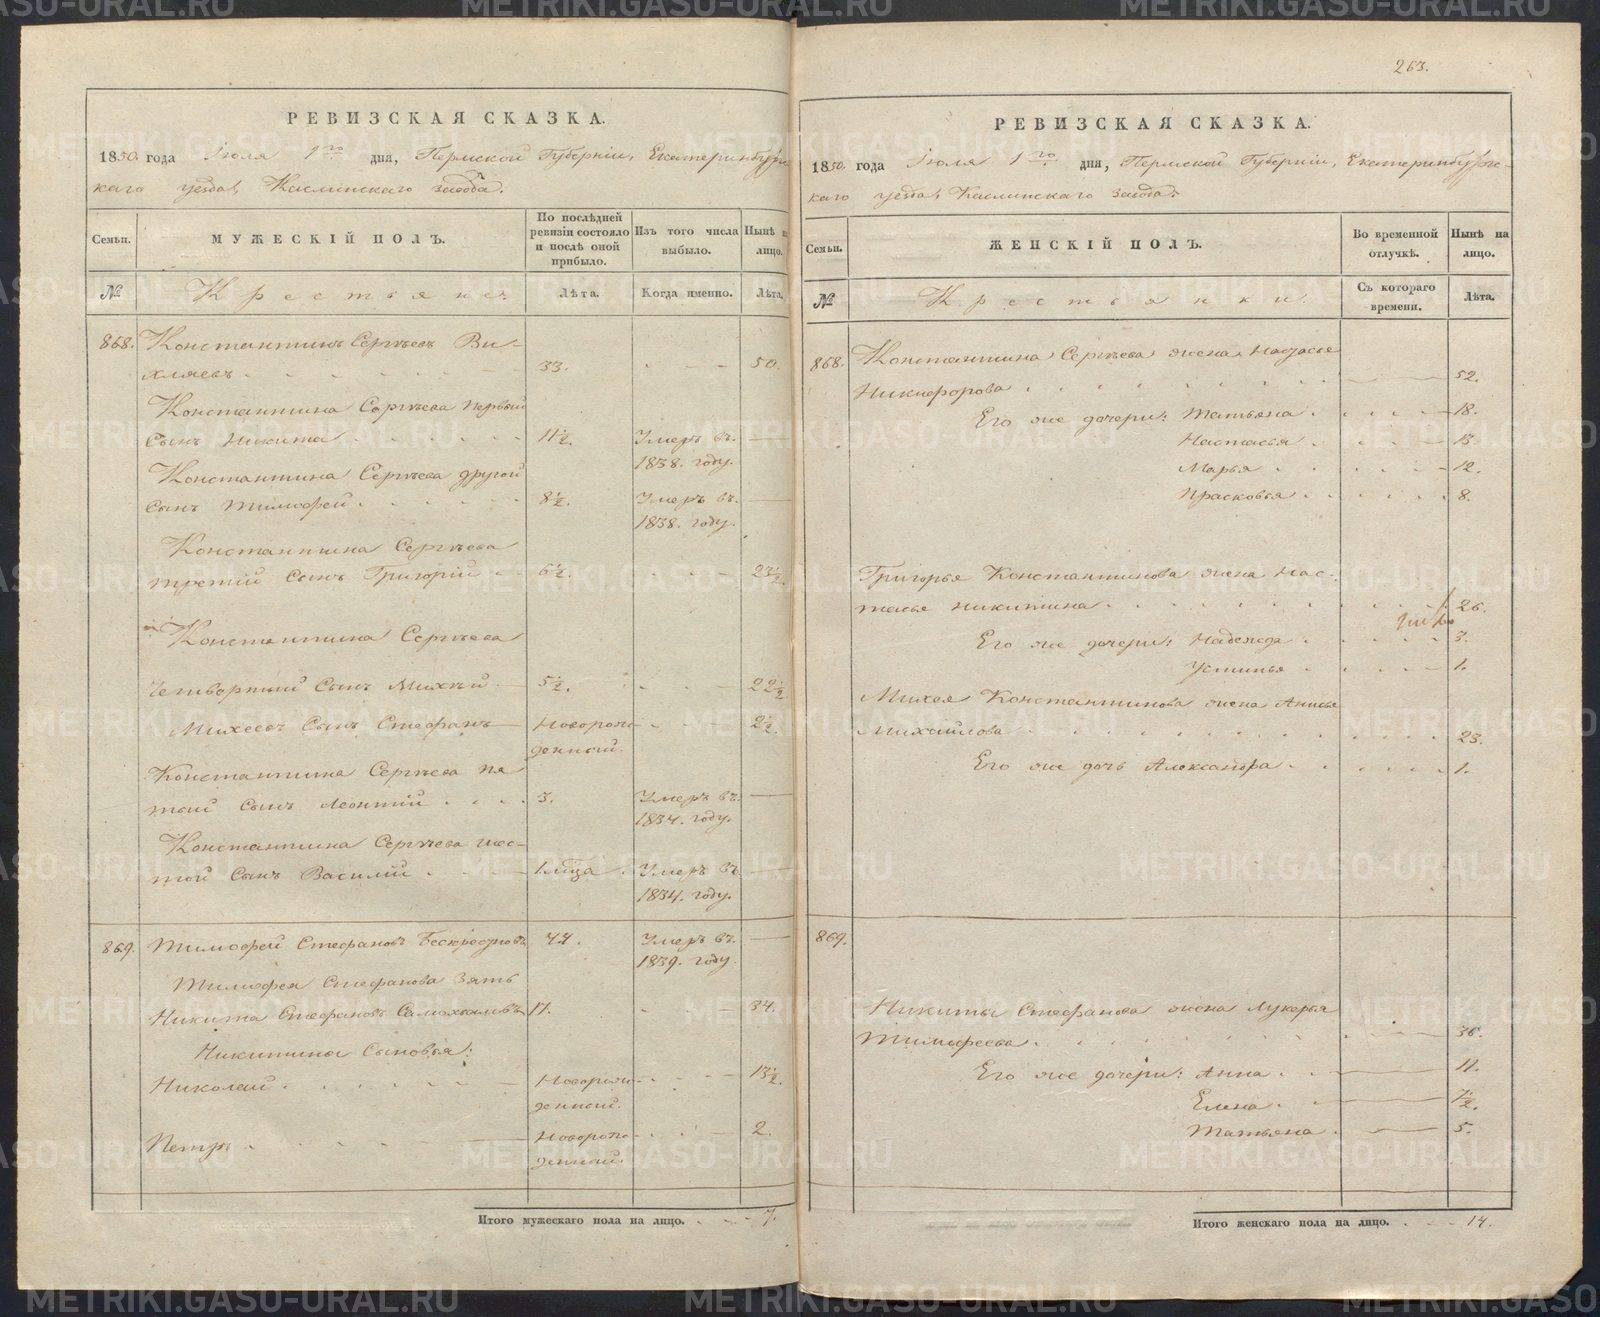 РЕВИЗСКАЯ СКАЗКА.
1850. года Іюля 1го дня, Пермской Губерніи, Екатеринбургс-
каго уѣзда, Каслинскаго завода.
Семьи.
МУЖЕСКІЙ ПОЛЪ.
По послѣдней ревизіи состояло и послѣ оной прибыло.
Изъ того числа выбыло.
Нынѣ на лицо.
№
Крестьяне
Лѣта.
Когда именно.
Лѣта.
868. Константинъ Сергѣевъ Ви-
хляевъ 33. 50.
Константина Сергѣева первый
Сынъ Никита 11½. Умеръ въ
1838. году.
Константина Сергѣева другой
Сынъ Тимофей 8½. Умеръ въ
1838. году.
Константина Сергѣева
третій Сынъ Григорій 6½. 23½.
Константина Сергѣева
четвертый Сынъ Михѣй 5½. 22½
Михеевъ Сынъ Стефанъ Новорож- 2½.
денный.
Константина Сергѣева пя-
тый Сынъ Леонтій 3. Умеръ въ
1834. году.
Константина Сергѣева шес-
той Сынъ Василій 1 м̃ца Умеръ въ
1834. году.
869. Тимофей Стефановъ 44. Умеръ въ
1839. году.
Тимофея Стефанова Зять
Никита Стефановъ 17. 34.
Никитины Сыновья:
Николай Новорож- 13½.
денный.
Петръ Новорож- 2.
денный.
Итого мужескаго пола на лицо. 7.
263.
РЕВИЗСКАЯ СКАЗКА.
1850. года Іюля 1го дня, Пермской Губерніи, Екатеринбургс-
каго уѣзда, Каслинскаго завода.
Семьи.
ЖЕНСКІЙ ПОЛЪ.
Во временной отлучкѣ.
Нынѣ на лицо.
№
Крестьянки.
Съ котораго времени.
Лѣта.
868. Константина Сергѣева жена Настасья
Никифорова 52.
Его же дочери: Татьяна 18.
Настасья 13.
Марья 12.
Прасковья 8.
Григорья Константинова жена Нас-
тасья Никитина 26.
Его же дочери: Надежда 3.
Устинья 1.
Михея Константинова жена Анисья
Михайлова 23.
Его же дочь Александра 1.
869.
Никиты Стефанова жена Лукерья
Тимофеева 36.
Его же дочери: Анна 11.
Елена 7½.
Татьяна 5.
Итого женскаго пола на лицо. 14.
METRIKI.GASO-URAL.RU